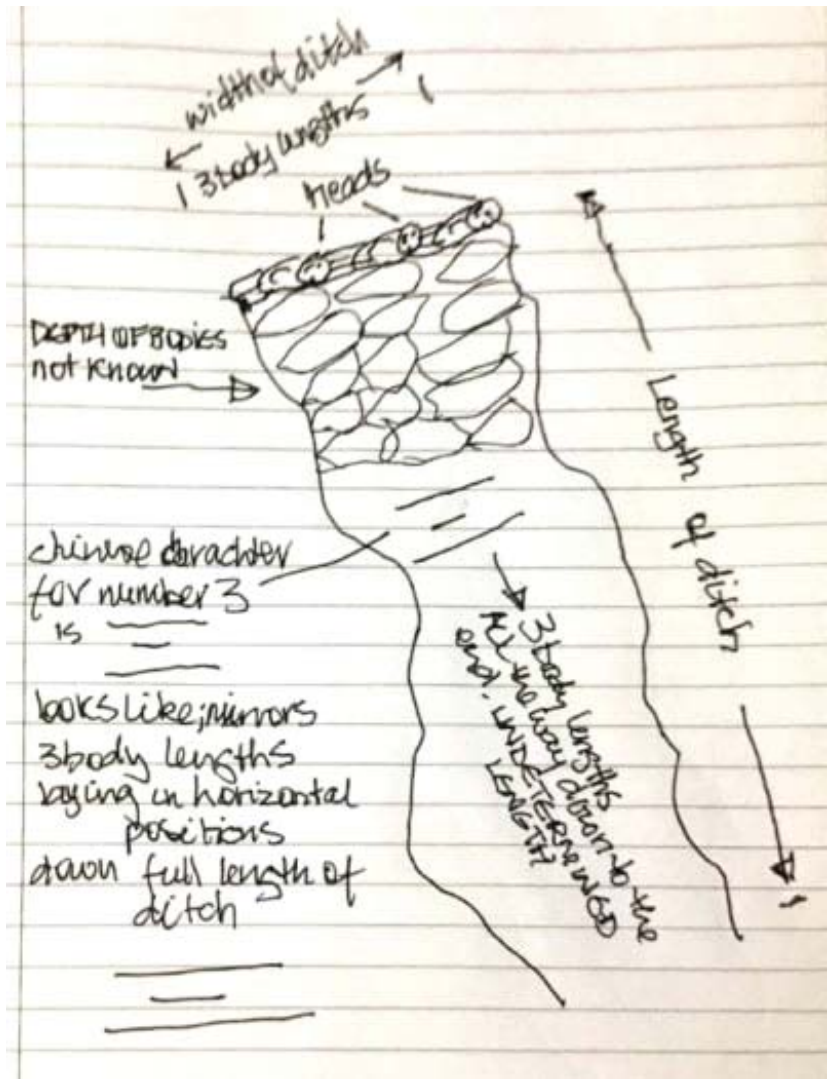 width of ditch
3 body lengths
heads
DEPTH OF BODIES
not known
Length of ditch
chinese character
for number 3
is 三
looks like; mirrors
3 body lengths
laying in horizontal
positions
down full length of
ditch
三
三
3 body lengths
All the way down to the
end. UNDETERMINED
LENGTH